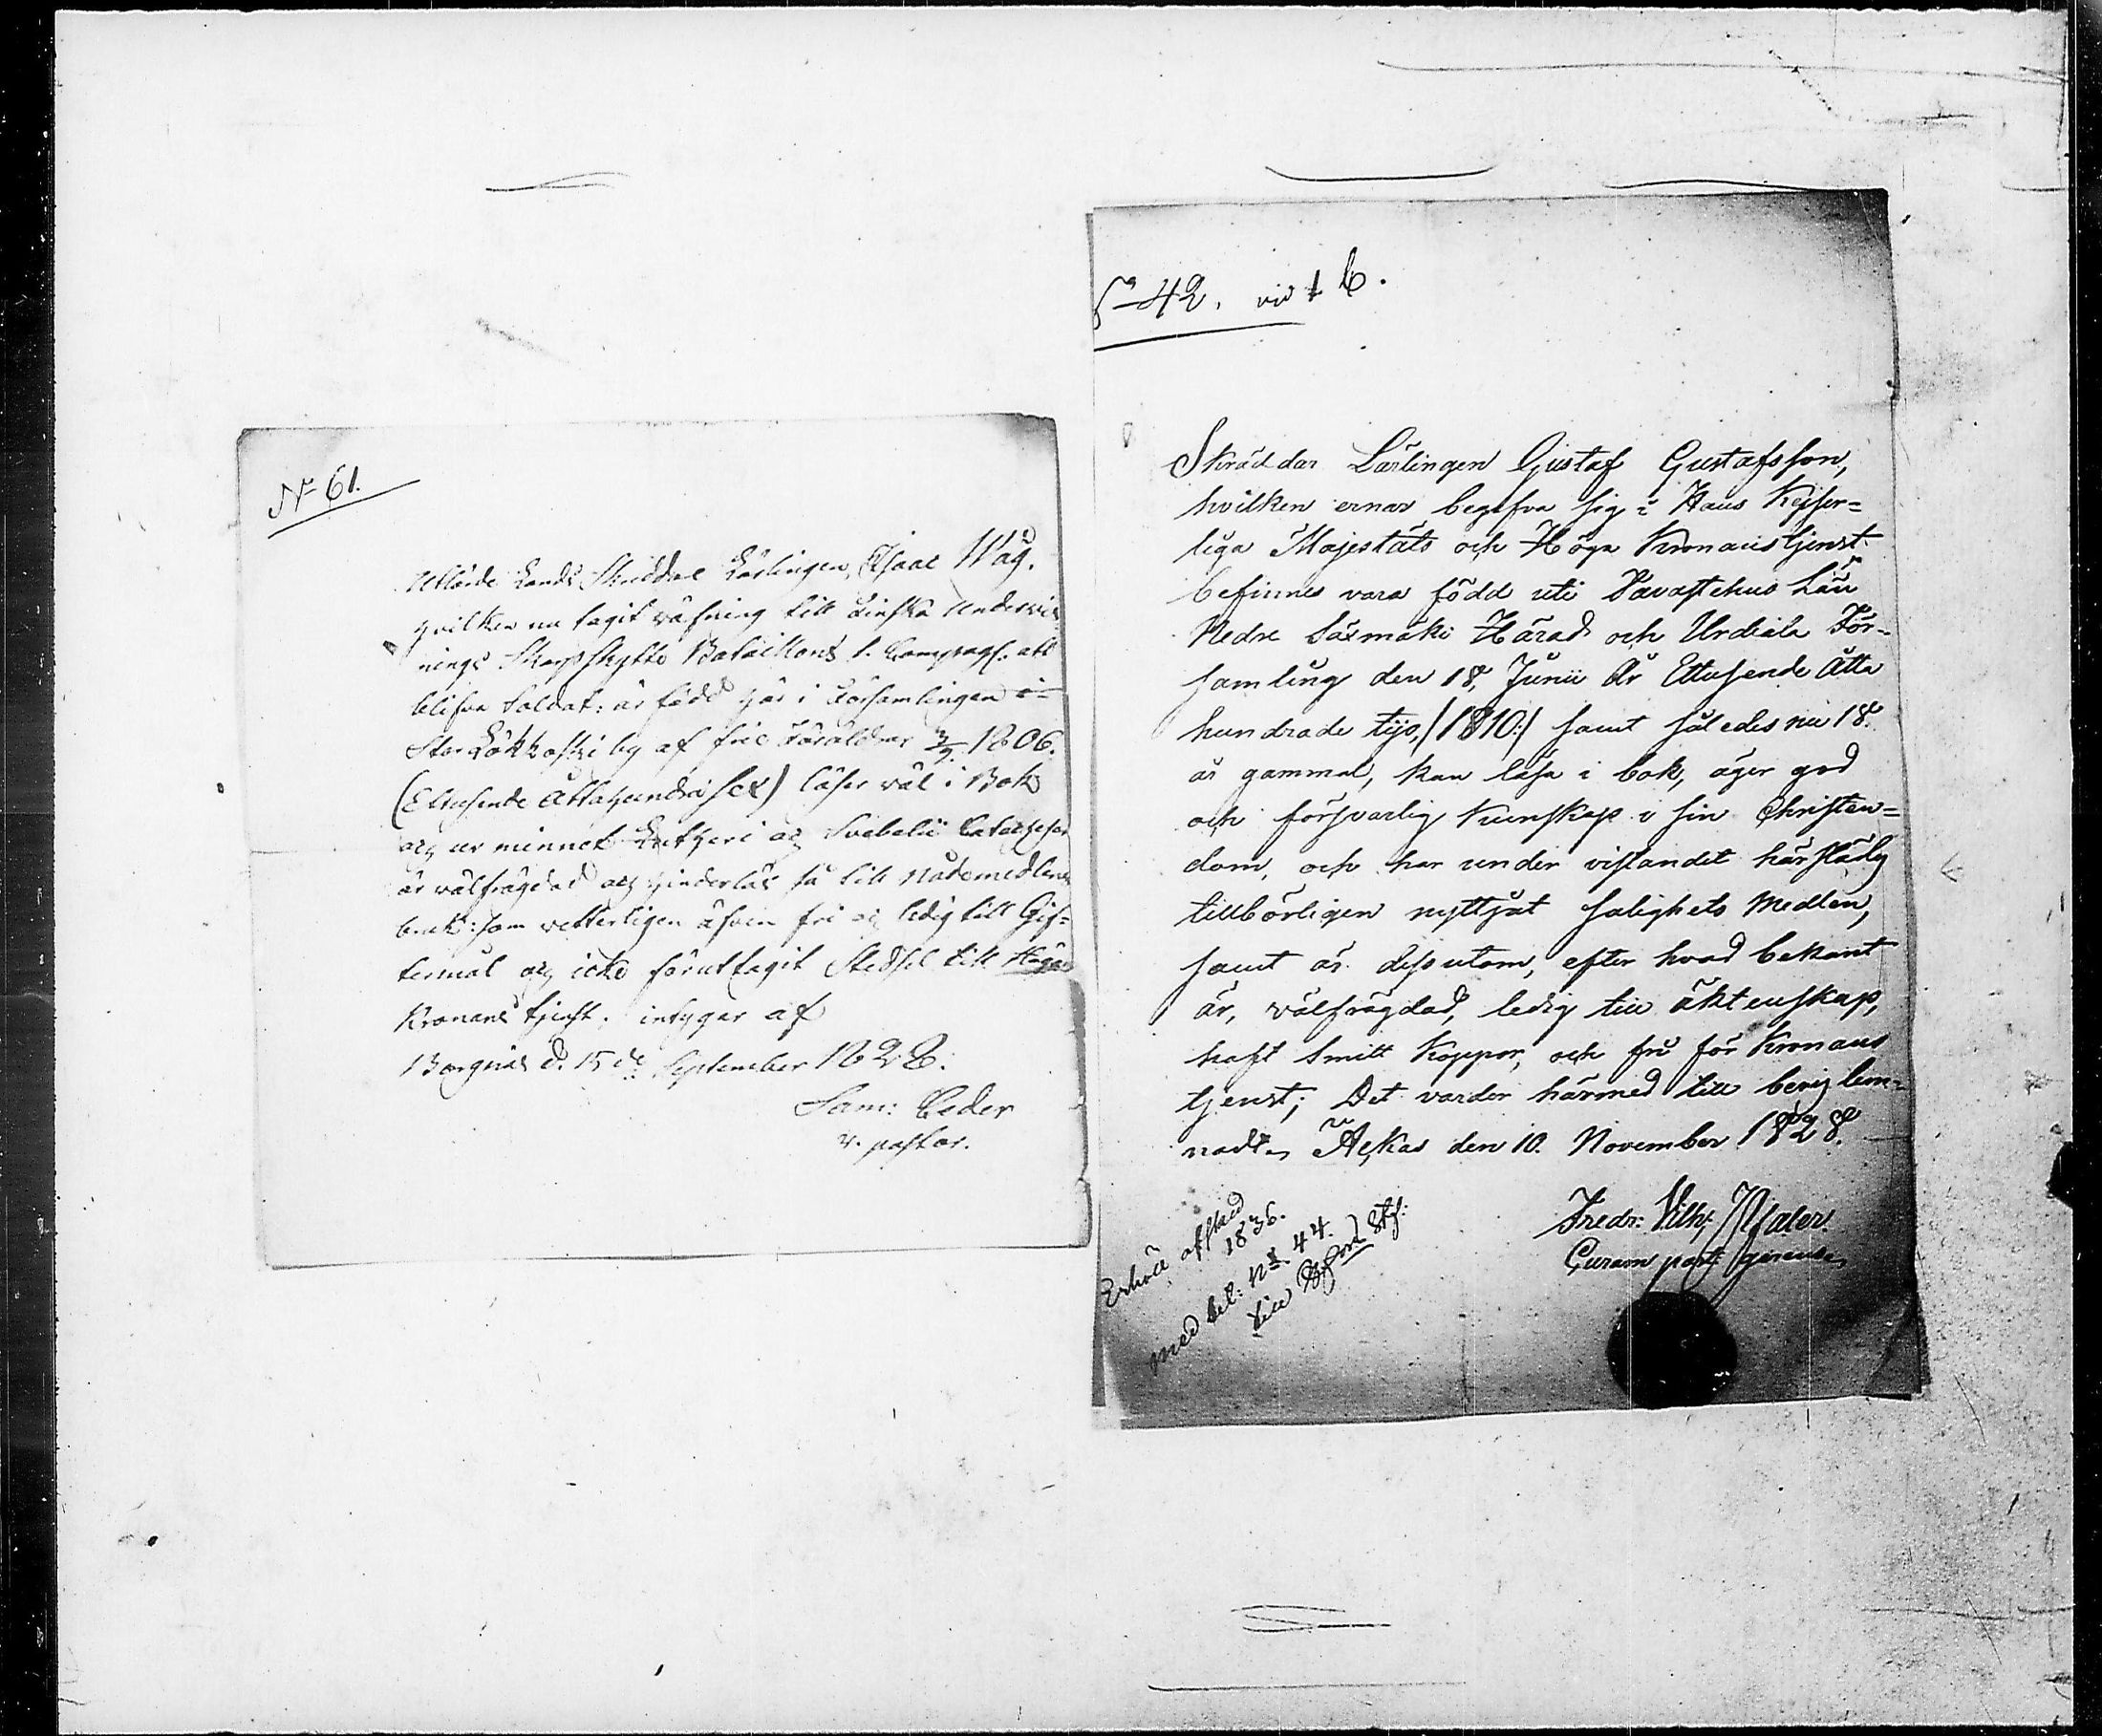 N<sup>o</sup> 61.
Utlärde Lands Skreddare Lärlingen, Isaac Wåg.
hvilken nu tagit värfning till Finska Undervis-
nings Skarpskytte Bataillons 1. Compagi. att
blifva Soldat: är född här i Församlingen i
Stor Lökkoski by af frie Föräldrar 3/9. 1806.
(Ettusende Åttahundra sex) läser väl i Bok
och ur minnet Lutheri och Svebelii Catecheser
är välfrägdad och hinderlös så till Nådemedlens
bruk: som vetterligen äfven fri och ledig till Gif-
termål och icke förut tagit Stedsel till Höga
Kronans tjenst. intygar af
Borgnäs d. 15 de September 1828.
Sam: Ceder
v. pastor.
42. vid 1 C.
Skräddar Lärlingen Gustaf Gustafsson,
hvilken ernar begifva sig i Hans Kejser=
liga Majestäts och Höga Kronans tjenst
befinnes vara född uti Tavastehus Län
Nedre Säxmäki Härad och Urdiala För-
samling den 18, Junii År Ettusende Åtta
hundrade tijo, /:1810:/ samt således nu 18.
år gammal, kan läsa i bok, äger god
och försvarlig Kunskap i sin Christen=
dom, och har under vistandet härstädes
tillbörligen nyttjat salighets Medlen,
samt är dessutom, efter hvad bekant
är, välfrägdad, ledig till äktenskap,
haft Smitt Koppor, och fri för Kronans
tjenst; Det varder härmed till bevis lem-
nadt. Ackas den 10. November 1828.
Fredr: Vilh:
Curam past: gerens
Erhöll afsked
1836.
med bet: N<sup>o</sup> 44.
till